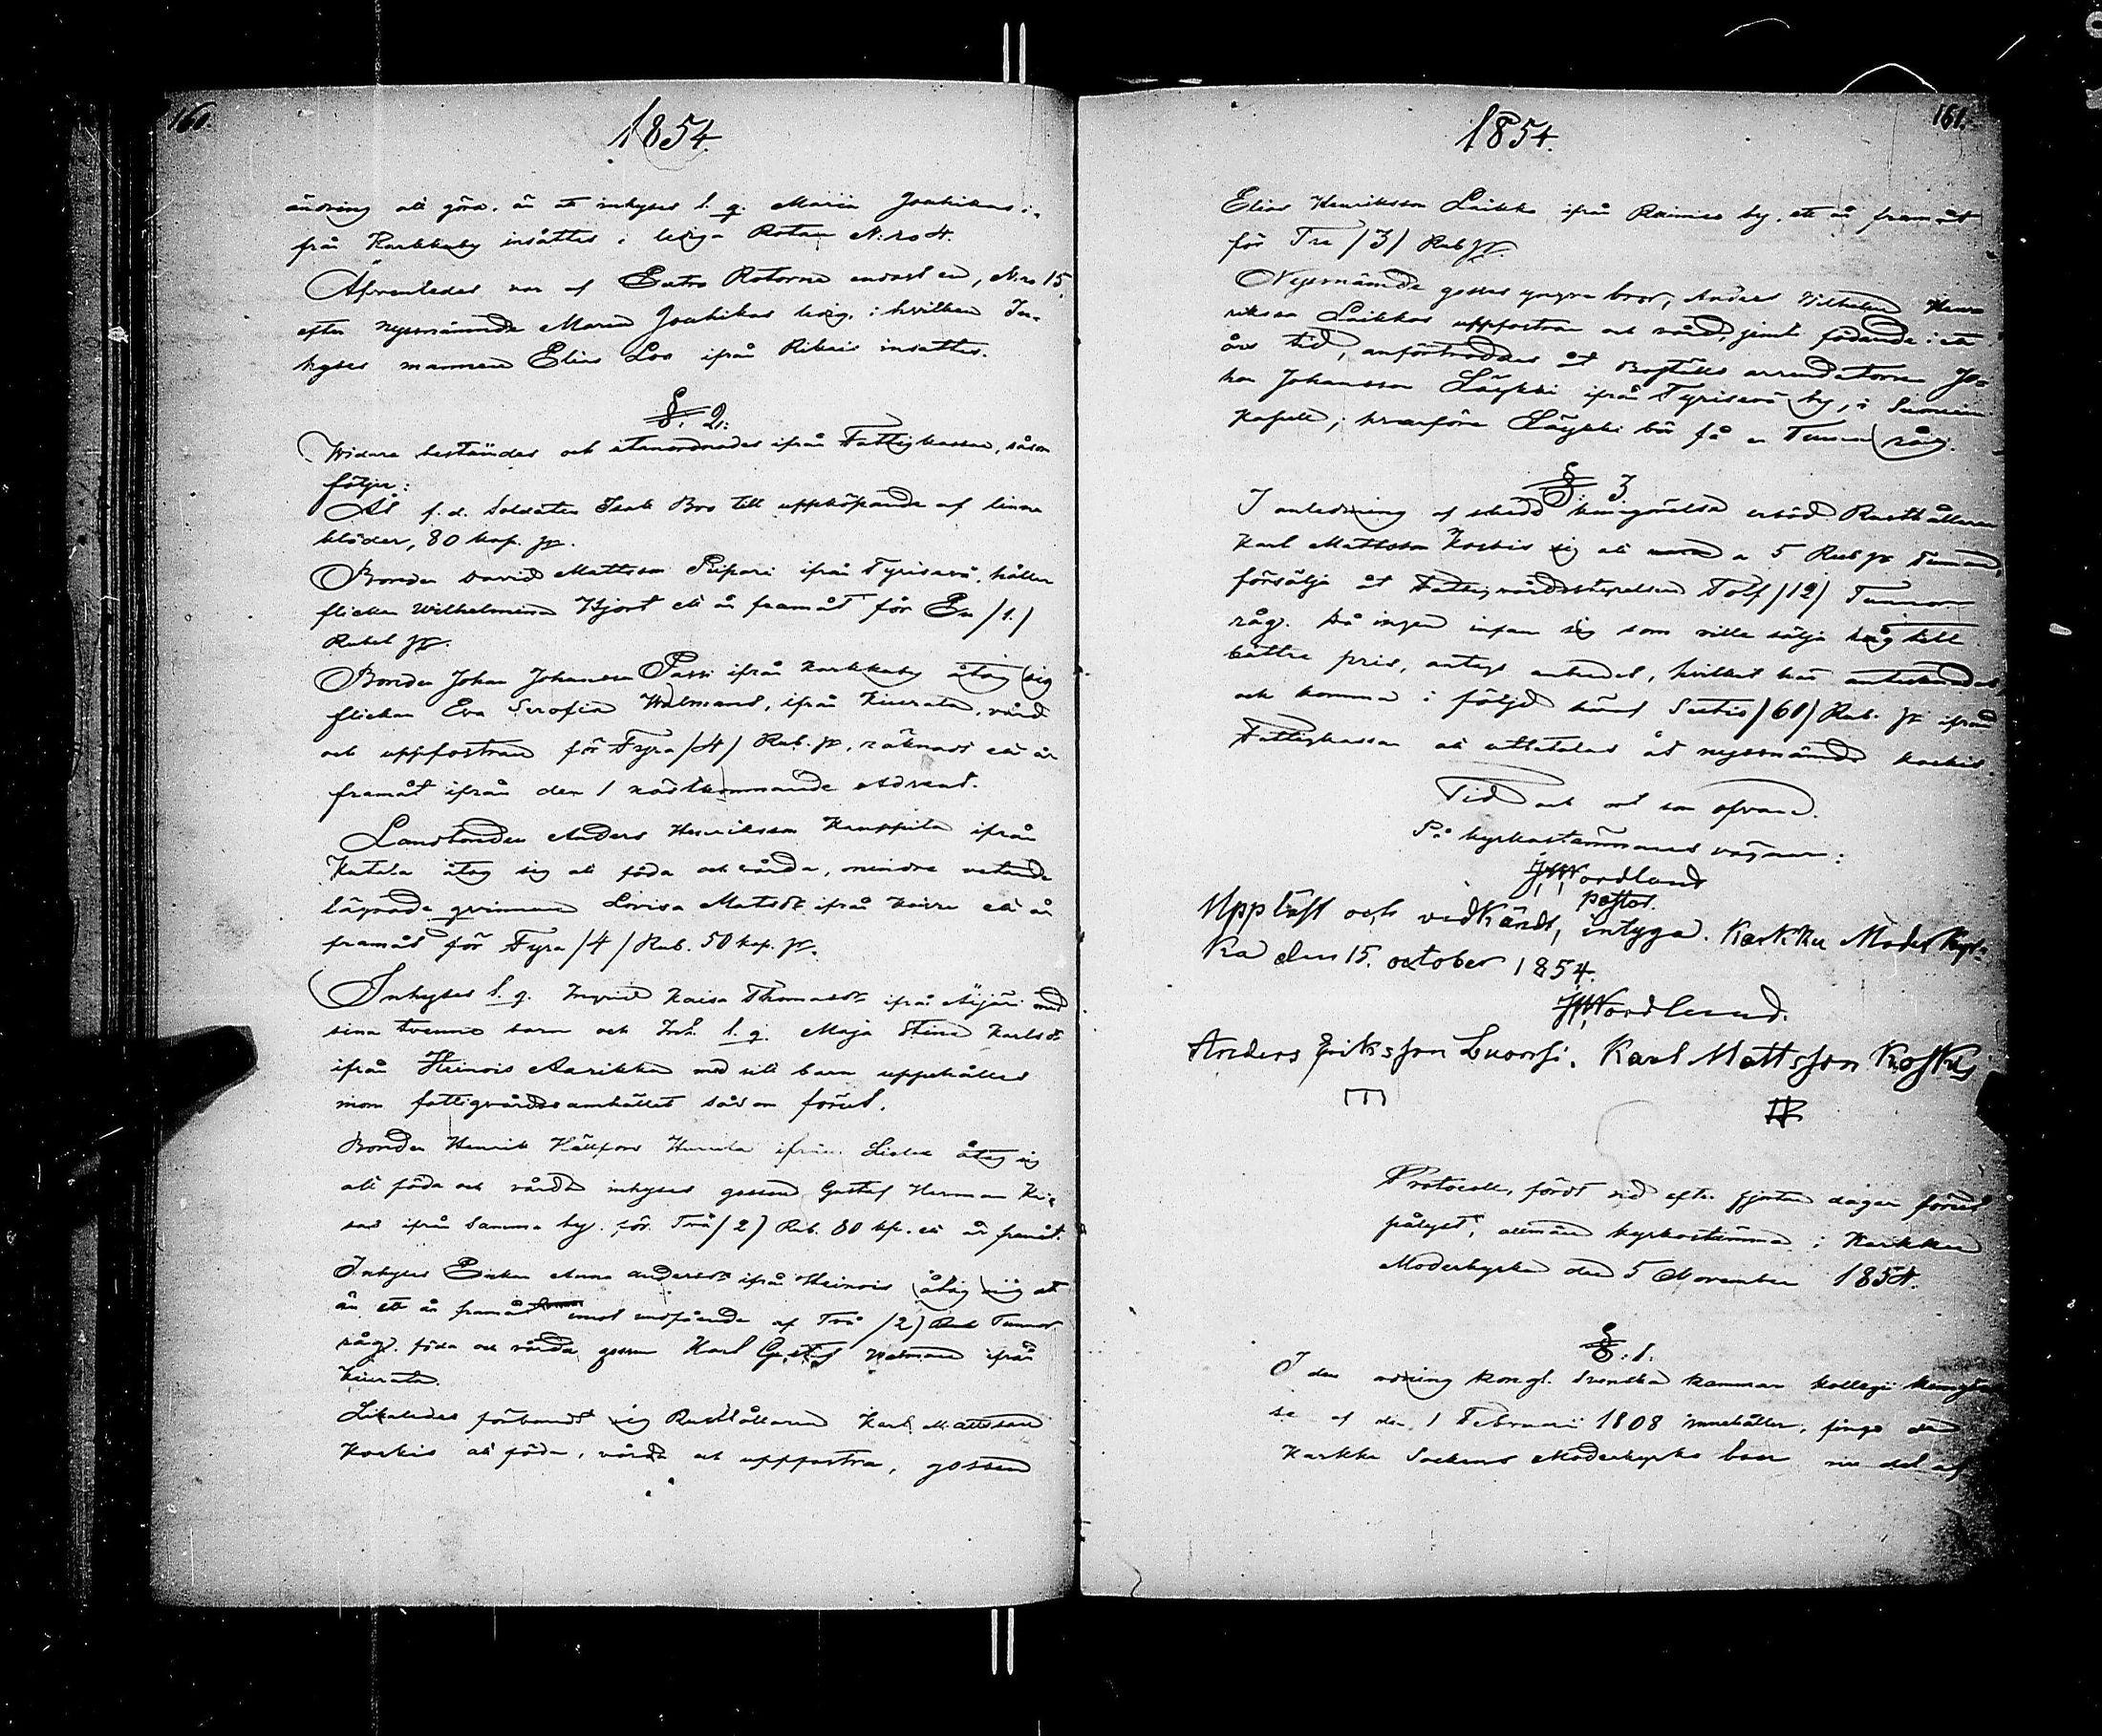 161.
1854.
ändring att göra, än att inhyses l. q. Maria Jouhikas i-
från Karkkuby insättes i lediga Rotan N:ro 4.
Äfvenledes var af Extra Rotorne endast en, N:ro 15,
efter nyssnämnde Maria Jouhikas ledig, i hvilken In-
hyses mannen Elias Loo ifrån insattes.
§. 2.
Widare beständes och utanordnades ifrån Fattigkassan, såsom
följer:
Åt f. d. Soldaten Isak Bro till uppköpande af linne
kläder, 80 kop. Sr.
Bonden David Mattsson Piipari ifrån Tyrisevä, håller
flickan Wilhelmina Hjort ett år framåt för En /1./
Rubel Sr.
Bonden Johan Johansson Passi ifrån Karkkuby åtog sig
flickan Eva Serafia Walmans, ifrån Kiurala, vård
och uppfostran för Fyra /4/ Rub. Sr, räknadt ett år
framåt ifrån den 1 nästkommande Advent.
Landbonden Anders Henriksson Kauppila ifrån
Kutala åtog sig att föda och vårda, mindre vetande
lägrade qvinnan Lovisa Matsdr ifrån ett år
framåt för Fyra /4/ Rub. 50 kop. Sr.
Inhyses l. q. Ingrid Kaisa Thomasdr ifrån Äijäri med
sina tvenne barn och Inh. l. q. Maja Stina Karlsdr
ifrån Heinois Aarikka med sitt barn uppehålles
inom fattigvårdssamhället såsom förut.
Bonden Henrik Hurula ifrån åtog sig
att föda och vårda inhyses gossen Gustaf Herman
ifrån Samma by, för Två /2/ Rub. 80 kp. ett år framåt.
Inhyses Enkan Anna Andersdr ifrån Heinois åtog sig att
än ett år framåt emot undfående af Två /2/ Tunnor
råg, föda och vårda gossen Karl Gustaf Walman ifrån
Kiurala.
Likaledes förbandt sig Rusthållaren Karl Mattsson
Koskis att föda, vårda och uppfostra, gossen
161.
1854.
Elias Henriksson Laikko ifrån by, ett år framåt
för Tre /3/ Rub Sr.
Nyssnämnde gosses yngre bror, Anders Wilhelm Hen-
riksson Laikkos uppfostran och vård, jemte födande i ett
års tid, anförtroddes åt Boställs arrendatorn Jo-
han Johansson Läykki ifrån Tyrisevä by, i Suoniemi
Kapell; hvarföre Läykki bör få en Tunna råg.
§. 3
I anledning af skedd kungörelse erböd Rusthållaren
Karl Mattsson Koskis sig att a 5 Rub Sr Tunnan,
försälja åt Fattigvårdsstyrelsen Tolf /12/ Tunnor
råg. Då ingen infann sig som ville sälja råg till
bättre pris, antogs anbudet, hvilket här antecknades
och komma i följd häraf Sextio /60/ Rub. Sr ifrån
Fattigkassan att utbetalas åt nyssnämnde Koskis.
Tid och ort som ofvan.
På kyrkostämmans vägnar:
JWNordlund
pastor.
Uppläst och vidkändt, intyga. Karkku Moder kyr-
ka den 15. october 1854.
JWNordlund.
Anders Eriksson Luoosi. Karl Mattsson Koskis
Protocoll, fördt vid efter fjorton dagar förut
pålyst, allmän kyrkostämma i Karkku
Moderkyrka den 5 November 1854.
§. 1.
I den ordning Kongl. Svenska Kammar Kollegii kungörel-
se af den 1 Februarii 1808 innehåller, fingo de
Karkku Sockens Moderkyrko boer nu del af